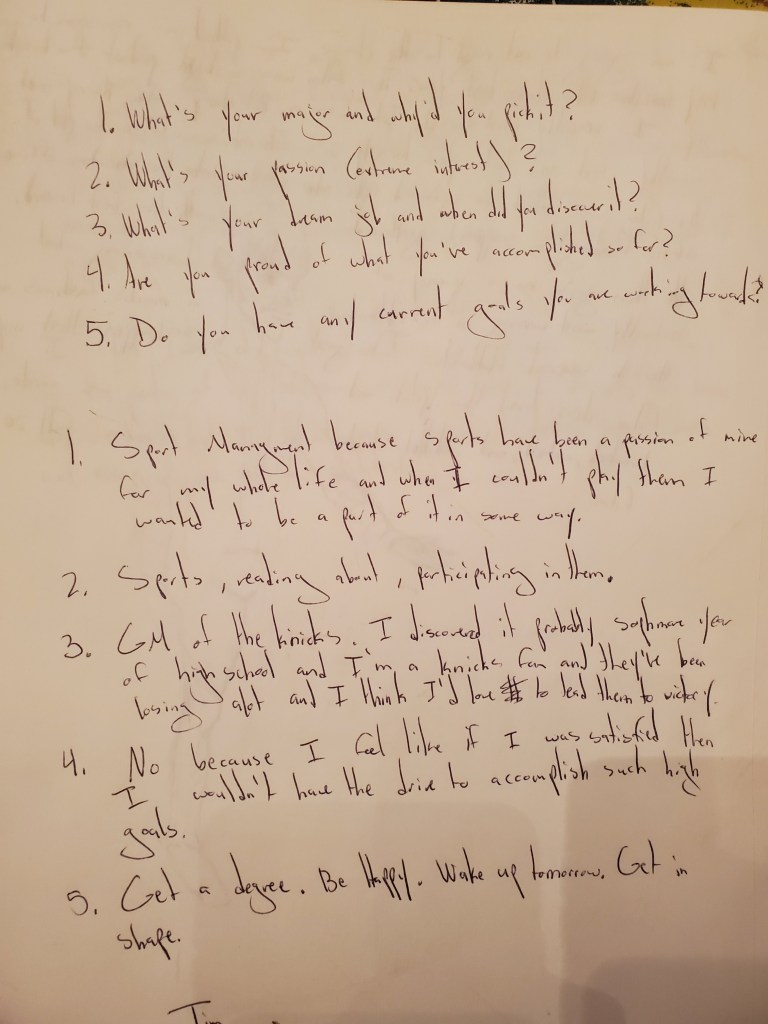 1. What's your major and why'd you pick it?
2. What's your passion (extreme interest)?
3. What's your dream job and when did you discover it?
4. Are you proud of what you've accomplished so far?
5. Do you have any current goals you are working towards?
1. Sport Managment because sports have been a passion of mine
for my whole life and when I couldn't play them I
wanted to be a part of it in some way.
2. Sports, reading about, participating in them.
3. GM of the knicks. I discovered it probably sophmore year
of high school and I'm a knicks fan and they've been
losing alot and I think I'd love to lead them to victory.
4. No because I feel like if I was satisfied then
I wouldn't have the drive to accomplish such high
goals.
5. Get a degree. Be Happy. Wake up tomorrow. Get in
shape.